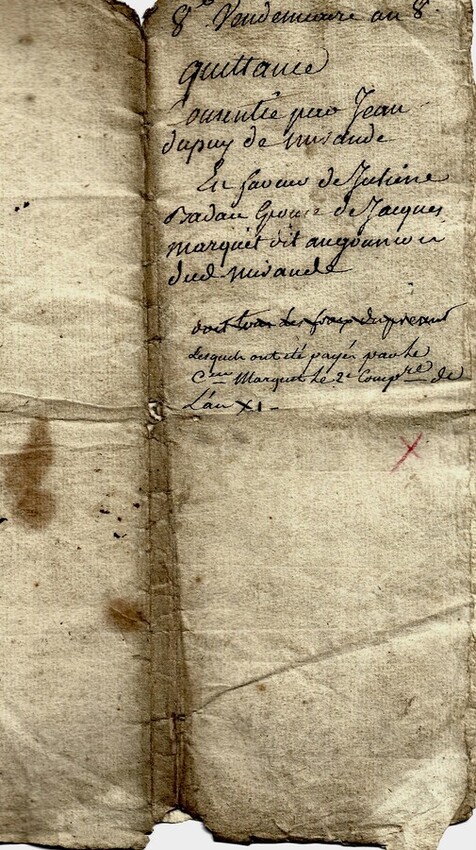 8e Vendemiaire an 8.
quittance
Consentie par Jean
dupuy de mirande
En faveur de Juliene
Badau Epouse de Jacques
marquet dit
dud mirande
doit tous les frais du présent
Lesquels ont été payés par le
Cen Marquet le 2e Compre de
L'an XI -